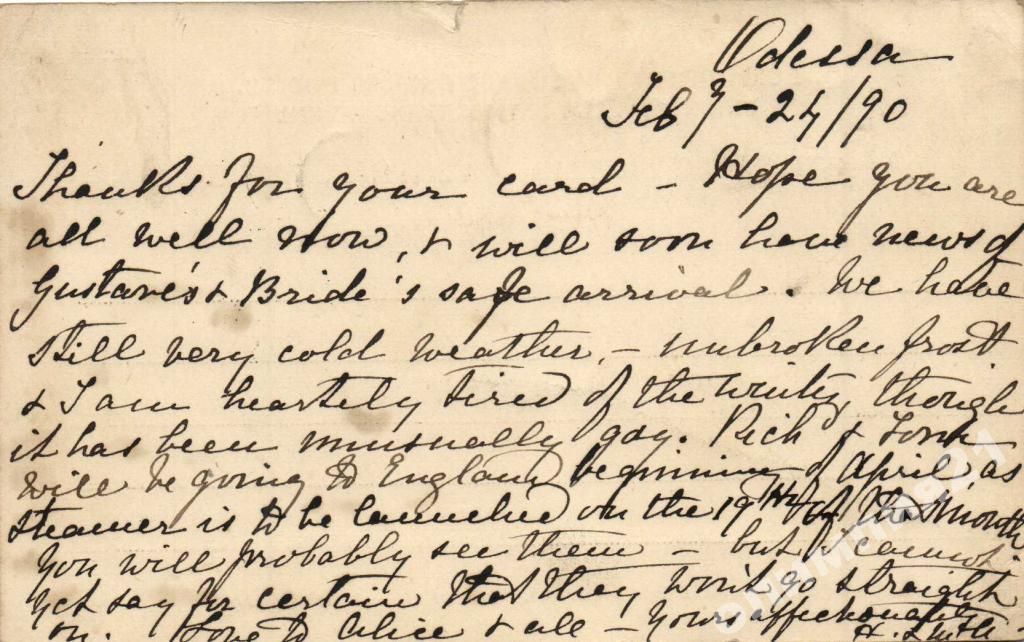 Odessa
Feb 7 - 24/90
Thanks for your card - Hope you are
all well now, & will soon have news of
Gustave's & Bride's safe arrival. We have
still very cold weather, - unbroken frost
& I am heartely tired of the winter, though
it has been unusually gay. Rich &
will be going to England beginning of April as
steamer is to be launched on the 19th of that month
You will probably see them - but I cannot
yet say for certain that they won't go straight
on. Love to Alice & all - Yours affectionately